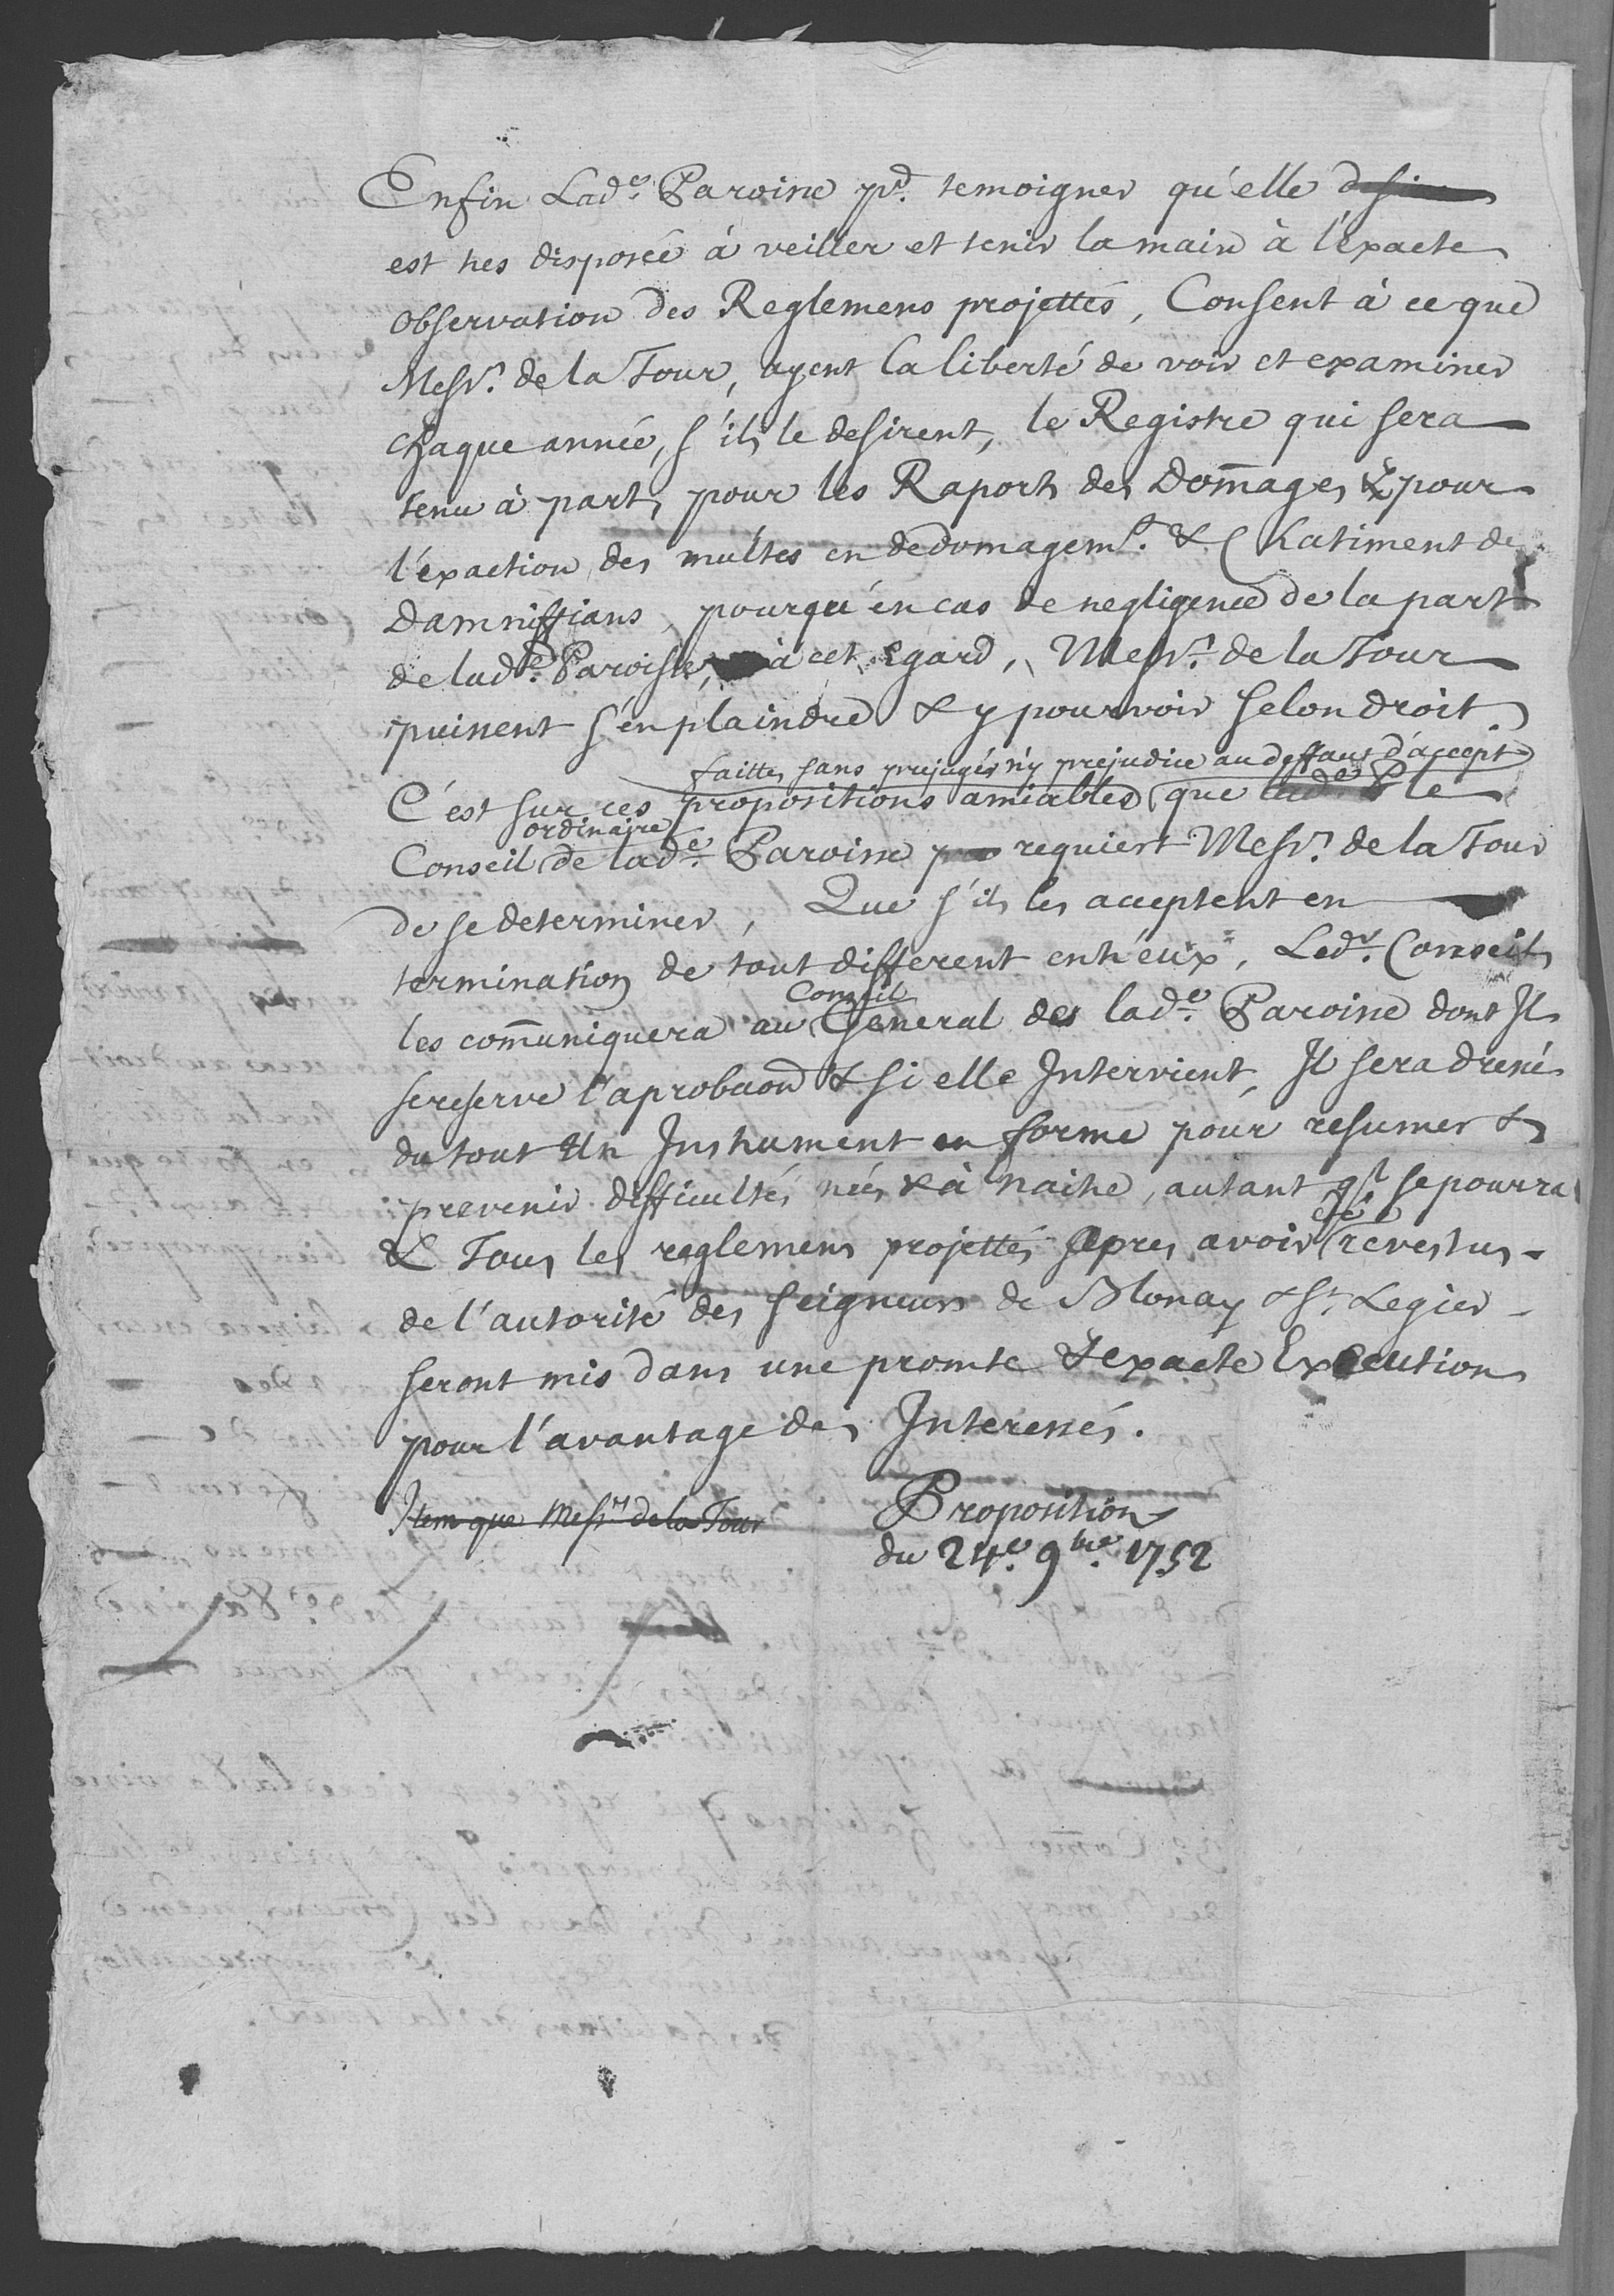 Enfin Lad.e Paroisse p.r temoigner qu'elle desire
est tres disposée à veiller et tenir la main à l'exacte
observation des Reglemens projettés, Consent à ce que
Mess.rs de la Tour, ayent la liberté de voir et examiner
chaque année, s'ils le desirent, le Registre qui sera
tenu à part, pour les Raports des Dom̄ages & pour
l'exaction des multes en dedomagem.t & Chatiment de
Damniffians, pourqu'en cas de negligence de la part
de lad.e Paroisse, à cet Egard, Mess.rs de la Tour
puissent s'en plaindre & y pourvoir selon droit.
faittes sans prejuger n'y prejudice au deffaut d'accept
C'est sur ces propositions amiables que lad.e P le
ordinaire
Conseil de lad.e Paroisse requiert Mess.rs de la Tour
de se determiner, Que s'ils les acceptent en
termination de tout different entr'eux, Led.t Conseil
Conseil
les com̄uniquera au General des lad.e Paroisse dont Il
se reserve l'aprobaōn & si elle Intervient, Il sera dressé
du tout Un Instrument en forme pour resumer &
prevenir difficultés nées & à naitre, autant q.l se pourra
été
& Tous les reglemens projettés apres avoir revestus
de l'autorité des seigneurs de Blonay & S.t Legier
seront mis dans une promte & exacte Execution
pour l'avantage des Interessés.
Item que Mess.rs de la Tour
Proposition
du 24.e 9bre. 1752